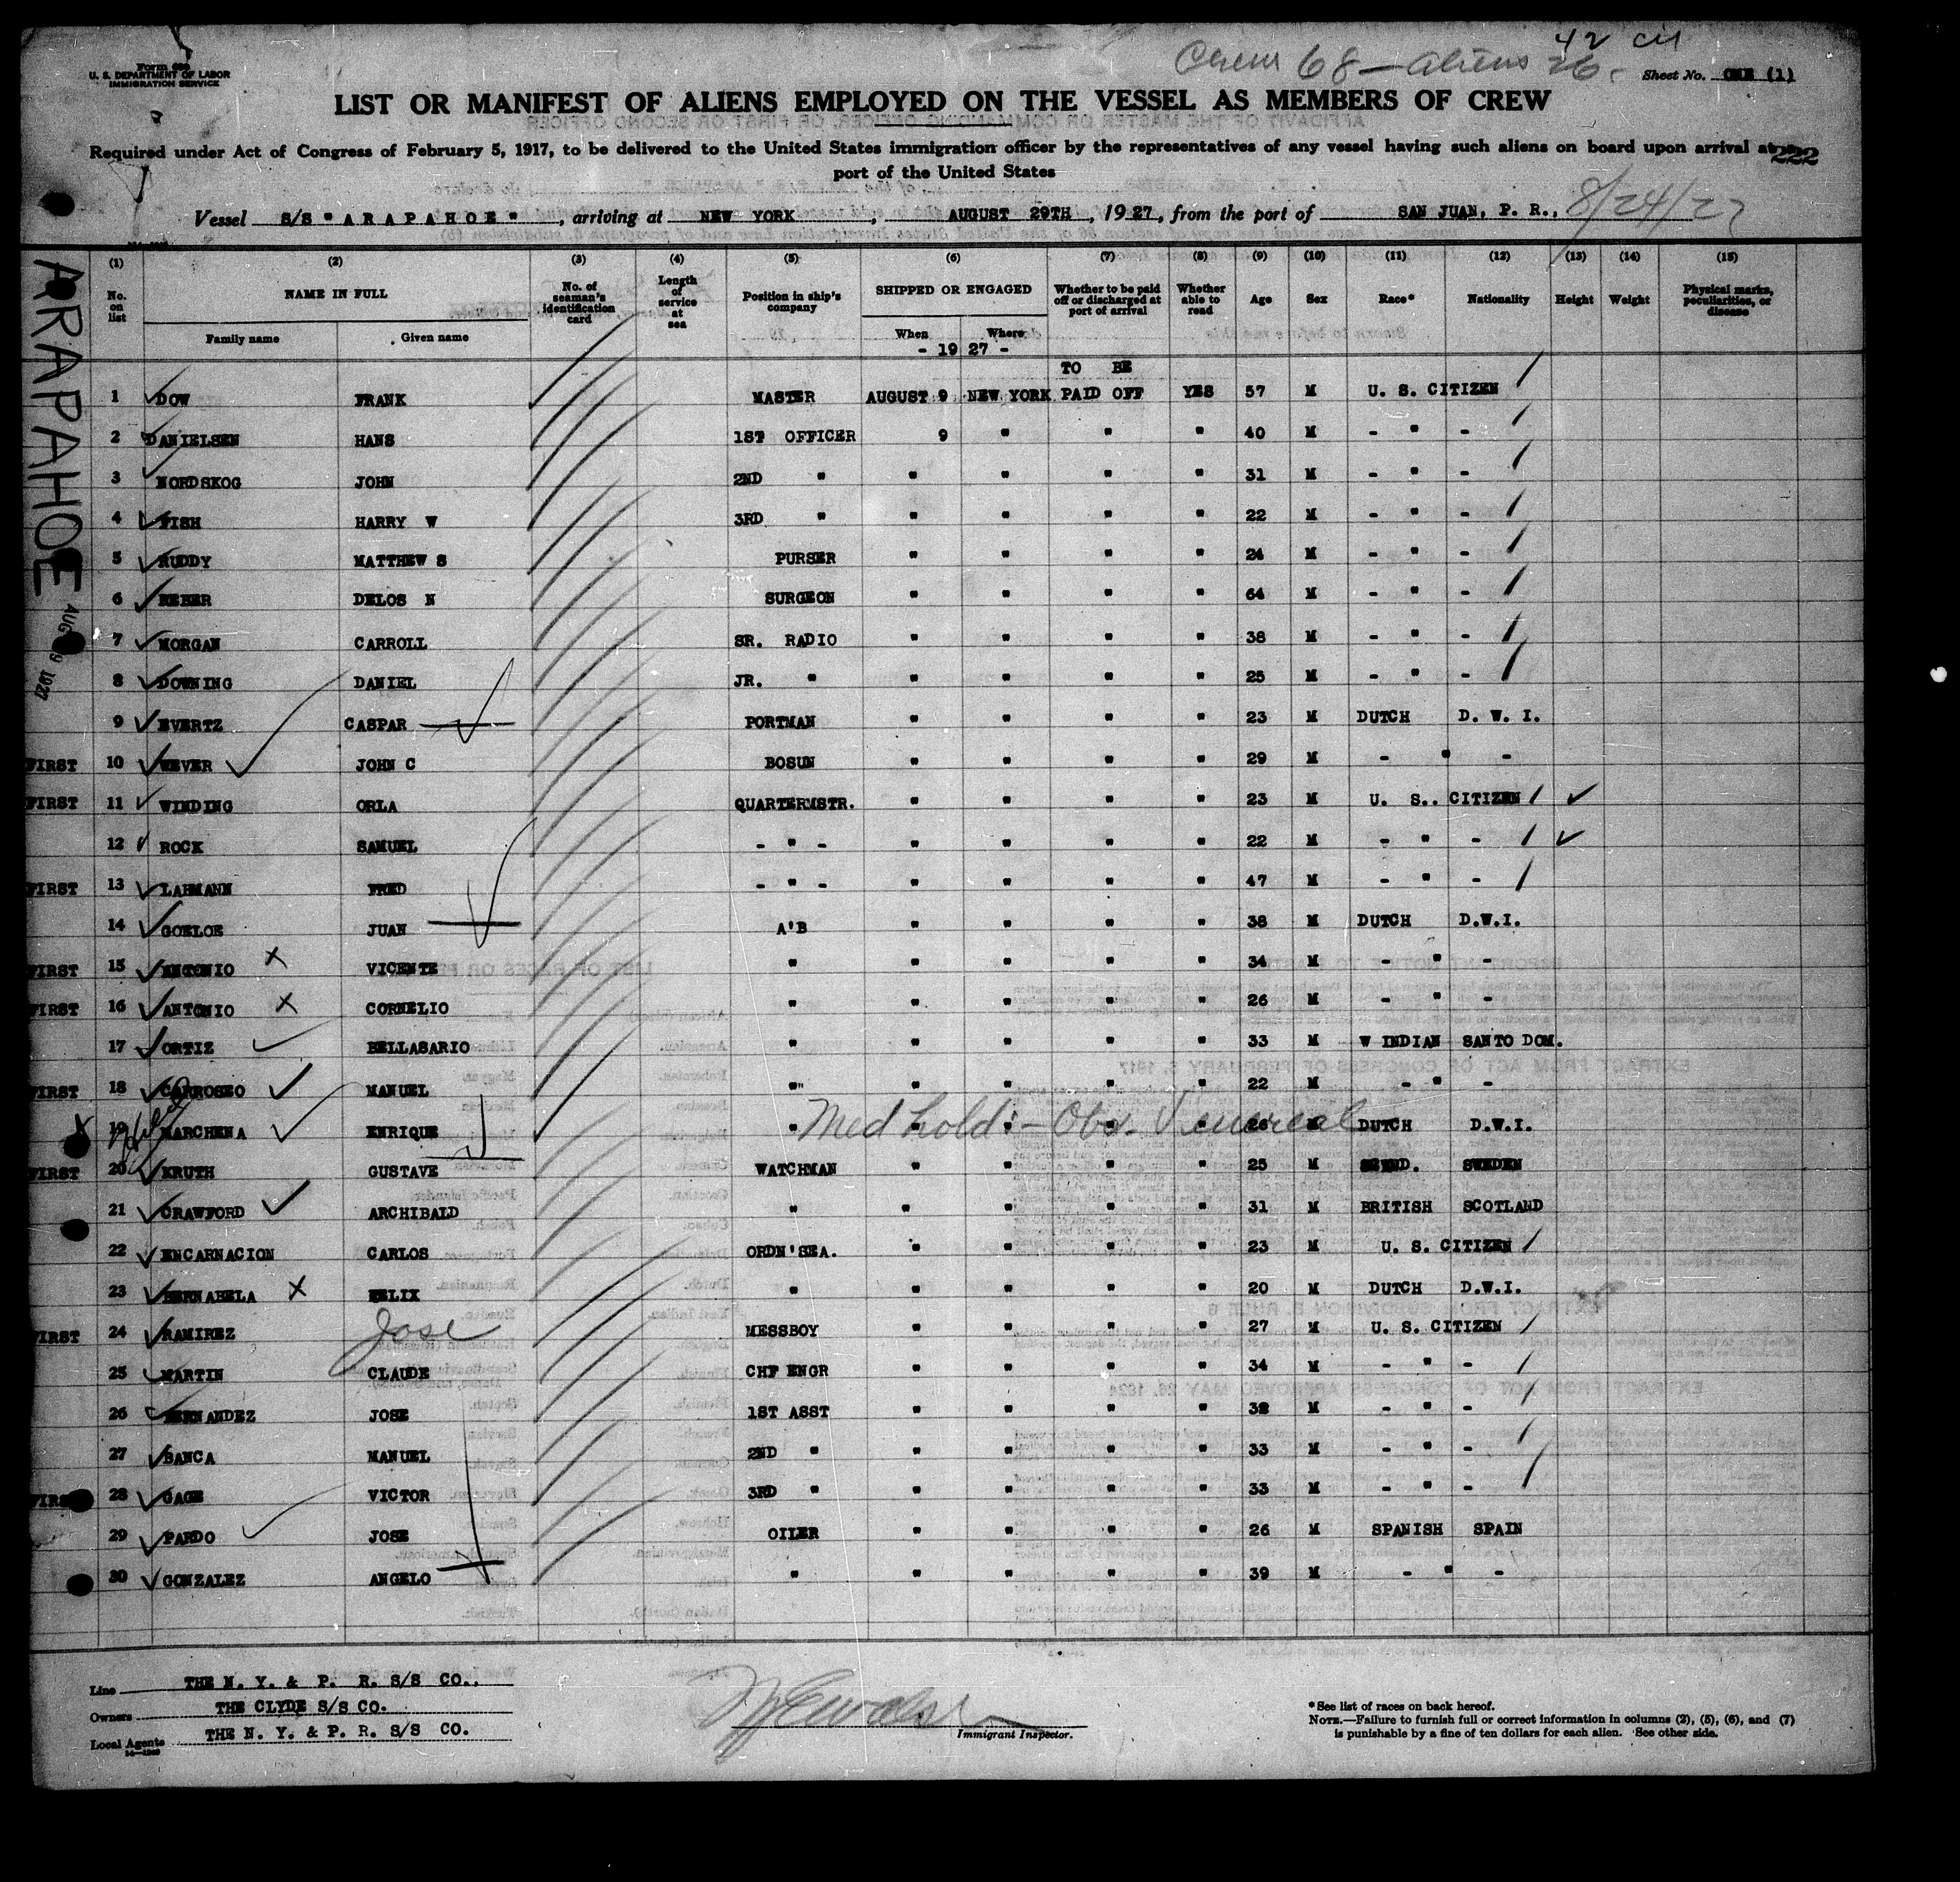 Crew 68 — aliens 26. 42 cit
Form 689
U. S. DEPARTMENT OF LABOR
IMMIGRATION SERVICE
Sheet No. ONE (1)
LIST OR MANIFEST OF ALIENS EMPLOYED ON THE VESSEL AS MEMBERS OF CREW
Required under Act of Congress of February 5, 1917, to be delivered to the United States immigration officer by the representatives of any vessel having such aliens on board upon arrival at a 222
port of the United States
Vessel S/S "ARAPAHOE", arriving at NEW YORK, AUGUST 29TH, 1927, from the port of SAN JUAN, P. R., 8/24/27
ARAPAHOE AUG 29 1927
(1) (2) (3) (4) (5) (6) (7) (8) (9) (10) (11) (12) (13) (14) (15)
No. on list NAME IN FULL No. of seaman's identification card Length of service at sea Position in ship's company SHIPPED OR ENGAGED Whether to be paid off or discharged at port of arrival Whether able to read Age Sex Race* Nationality Height Weight Physical marks, peculiarities, or disease
Family name Given name When Where
- 19 27 -
TO BE
1 DOW FRANK MASTER AUGUST 9 NEW YORK PAID OFF YES 57 M U. S. CITIZEN
2 DANIELSEN HANS 1ST OFFICER 9 " " " 40 M - " -
3 NORDSKOG JOHN 2ND " " " " " 31 M - " -
4 FISH HARRY W 3RD " " " " " 22 M - " -
5 RUDDY MATTHEW S PURSER " " " " 24 M - " -
6 REBER DELOS N SURGEON " " " " 64 M - " -
7 MORGAN CARROLL SR. RADIO " " " " 38 M - " -
8 DOWNING DANIEL JR. " " " " " 25 M - " -
9 EVERTZ CASPAR PORTMAN " " " " 23 M DUTCH D. W. I.
FIRST 10 WEVER JOHN C BOSUN " " " " 29 M - " -
FIRST 11 WINDING ORLA QUARTERMSTR. " " " " 23 M U. S.. CITIZEN
12 ROCK SAMUEL - " - " " " " 22 M - " -
FIRST 13 LAHMANN FRED - " - " " " " 47 M - " -
14 GOELOE JUAN A'B " " " " 38 M DUTCH D.W.I.
FIRST 15 ANTONIO X VICENTE " " " " " 34 M - " -
FIRST 16 ANTONIO X CORNELIO " " " " " 26 M - " -
17 ORTIZ BELLASARIO " " " " " 33 M W INDIAN SANTO DOM.
FIRST 18 CARROSEO MANUEL " " " " " 22 M - " -
X Held 19 MARCHENA ENRIQUE " Med hold: - Obs. Venereal " " " " 26 M DUTCH D.W.I.
FIRST 20 KRUTH GUSTAVE WATCHMAN " " " " 25 M SCAND. SWEDEN
21 CRAWFORD ARCHIBALD " " " " " 31 M BRITISH SCOTLAND
22 ENCARNACION CARLOS ORDN'SEA. " " " " 23 M U. S. CITIZEN
23 BERNABELA X FELIX " " " " " 20 M DUTCH D.W.I.
FIRST 24 RAMIREZ Jose MESSBOY " " " " 27 M U. S. CITIZEN
25 MARTIN CLAUDE CHF ENGR " " " " 34 M - " -
26 HERNANDEZ JOSE 1ST ASST " " " " 32 M - " -
27 BANCA MANUEL 2ND " " " " " 33 M - " -
FIRST 28 GAGE VICTOR 3RD " " " " " 33 M - " -
29 PARDO JOSE OILER " " " " 26 M SPANISH SPAIN
30 GONZALEZ ANGELO " " " " " 39 M - " -
Line THE N. Y. & P. R. S/S CO.,
Owners THE CLYDE S/S CO.
Local Agents THE N. Y. & P. R. S/S CO.
14—1240
Immigrant Inspector.
*See list of races on back hereof.
NOTE.—Failure to furnish full or correct information in columns (2), (5), (6), and (7)
is punishable by a fine of ten dollars for each alien. See other side.